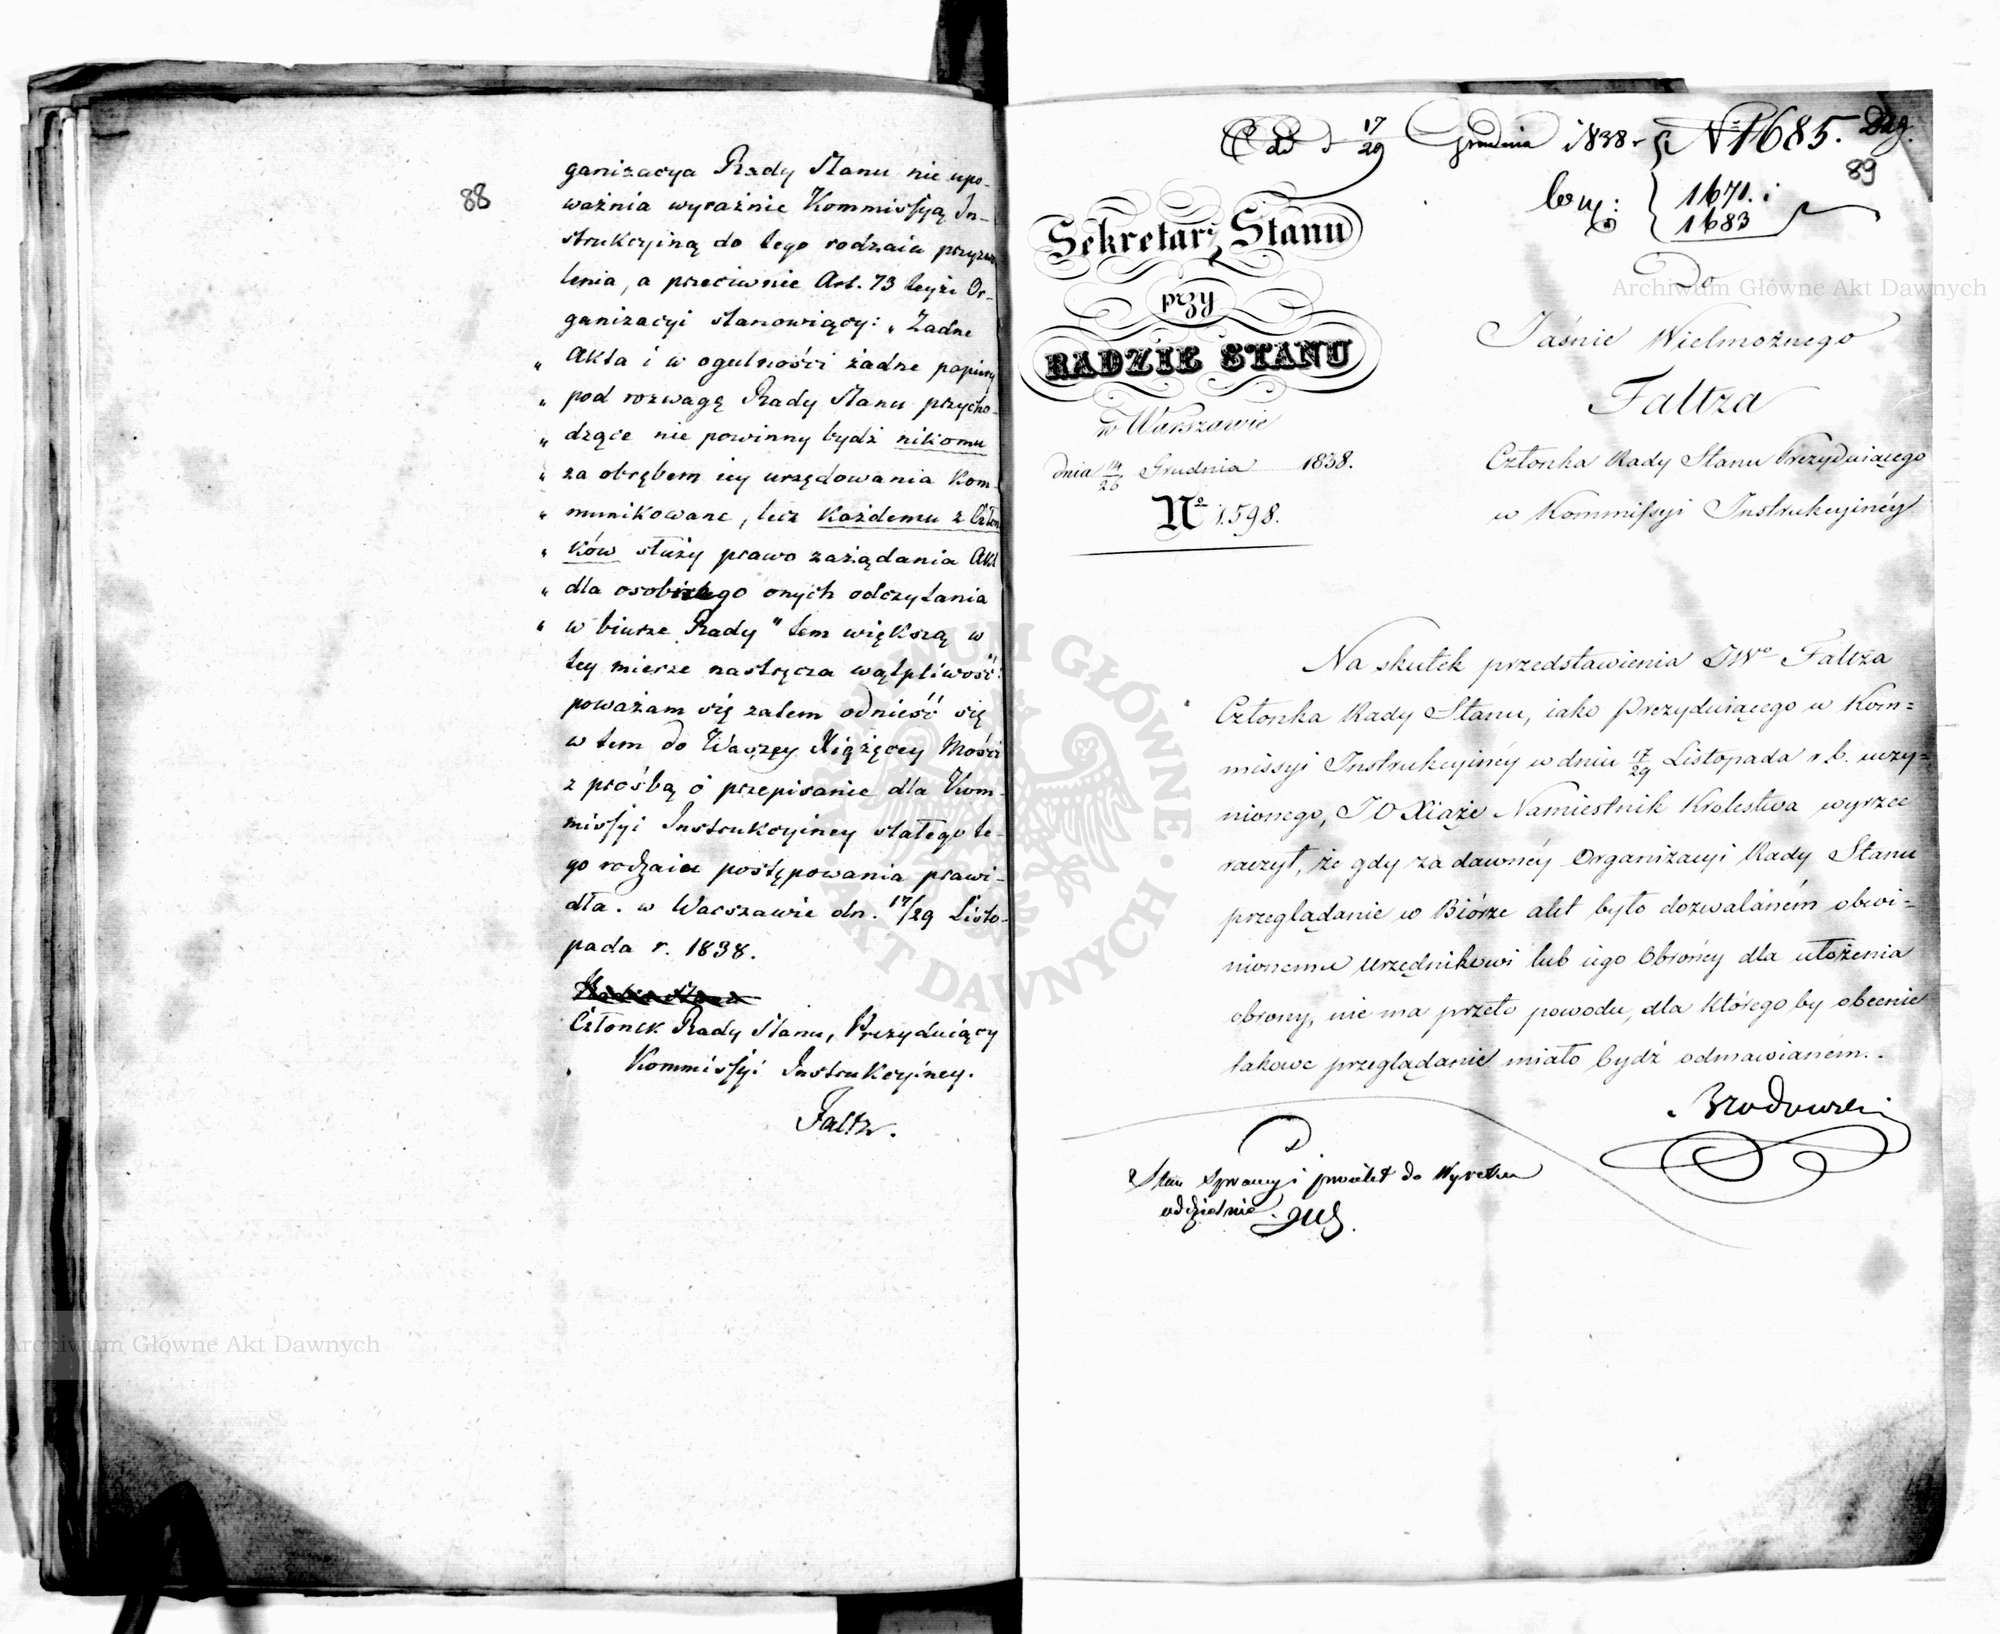 88
ganizacya Rady Stanu nie upo-
ważnia wyraźnie Kommissyą In-
strukcyiną do tego rodzaiu przyzwo
lenia, a przeciwnie Art. 73 teyże Or-
ganizacyi stanowiący: „Żadne
„ Akta i w ogulności żadne papiery
„ pod rozwagę Rady Stanu przycho-
„ dzące nie powinny bydź nikomu
„ za obrębem iey urzędowania kom-
„ munikowane, lecz każdemu z Człon
„ ków służy prawo zażądania Akt
„ dla osobistego onych odczytania
„ w biurze Rady" tem większą w
tey mierze nastręcza wątpliwość:
poważam się zatem odnieść się
w tem do Waszey Xiążęcey Mości
z prośbą o przepisanie dla Kom-
missyi Instrukcyiney stałego te-
go rodzaiu postępowania prawi-
dła. w Warszawie dn. 17/29 Listo-
pada r. 1838.
Członek Rady Stanu, Prezyduiący
Kommissyi Instrukcyiney.
Faltz.
d 17/29 Grudnia 1838 r. N 1685. Dzg.
89
1671. i
1683
Sekretarz Stanu
przy
RADZIE STANU
w Warszawie
dnia 14/26 Grudnia 1838.
No 1598.
Do
Jaśnie Wielmożnego
Faltza
Członka Rady Stanu Prezyduiącego
w Kommissyi Instrukcyinéy
Na skutek przedstawienia JWo Faltza
Członka Rady Stanu, iako Prezyduiącego w Kom=
missyi Instrukcyinéy w dniu 17/29 Listopada r. b. uczy=
nionego, JO Xiąże Namiestnik Krolestwa wyrzec
raczył, że gdy za dawnéy Organizacyi Rady Stanu
przeglądanie w Biórze akt było dozwalaném obwi=
nionemu urzędnikowi lub iego Obrońcy dla ułożenia
obrony, nie ma przeto powodu, dla którego by obecnie
takowe przeglądanie miało bydź odmawianém.
Brodowski
Stan Sprawy i proiekt do Wyroku
oddzielnie
Archiwum Główne Akt Dawnych
Archiwum Główne Akt Dawnych
ARCHIWUM GŁÓWNE · AKT DAWNYCH ·